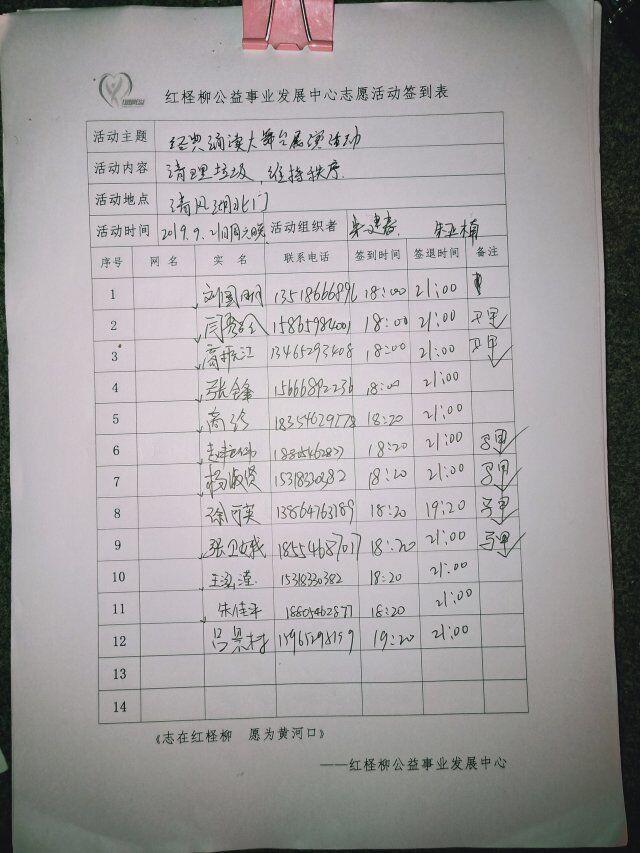 红柽柳公益事业发展中心志愿活动签到表
活动主题 经典诵读大舞台展演活动
活动内容 清理垃圾,维持秩序.
活动地点 清风湖北门
活动时间 2019.9.21日周六晚 活动组织者
序号 网名 实名 联系电话 签到时间 签退时间 备注
1 刘国明 13518666896 18:00 21:00
2 闫秀玲 15865984001 18:00 21:00
3 高振江 13465293408 18:00 21:00
4 张金锋 15666892236 18:00 21:00
5 高玲 18354629778 18:20 21:00
6 18805462877 18:20 21:00
7 杨淑贤 15318330382 18:20 21:00
8 徐可英 13864763189 18:20 19:20
9 张卫娥 18554687017 18:20 21:00
10 15318330382 18:20 21:00
11 朱佳平 18805462877 18:20 21:00
12 吕景村 15965298159 19:20 21:00
13
14
《志在红柽柳 愿为黄河口》
——红柽柳公益事业发展中心